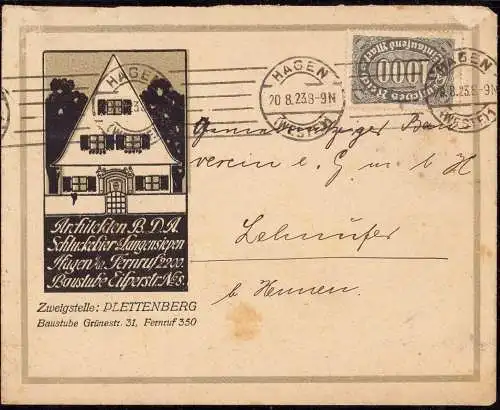 HAGEN
20.8.23.8-9N
(WESTF.)
Architekten B.D.A
Schluckebier & Langensiepen
Hagen i/W. Fernruf 2200.
Baustube Eilperstr. No 8.
Zweigstelle: PLETTENBERG
Baustube Grünestr. 31, Fernruf 350
1000
Deutsches Reich
HAGEN
20.8.23.8-9N
(WESTF.)
HAGEN
(WESTF.)
Bau
verein e. G. m. b. H
b. Hennen.